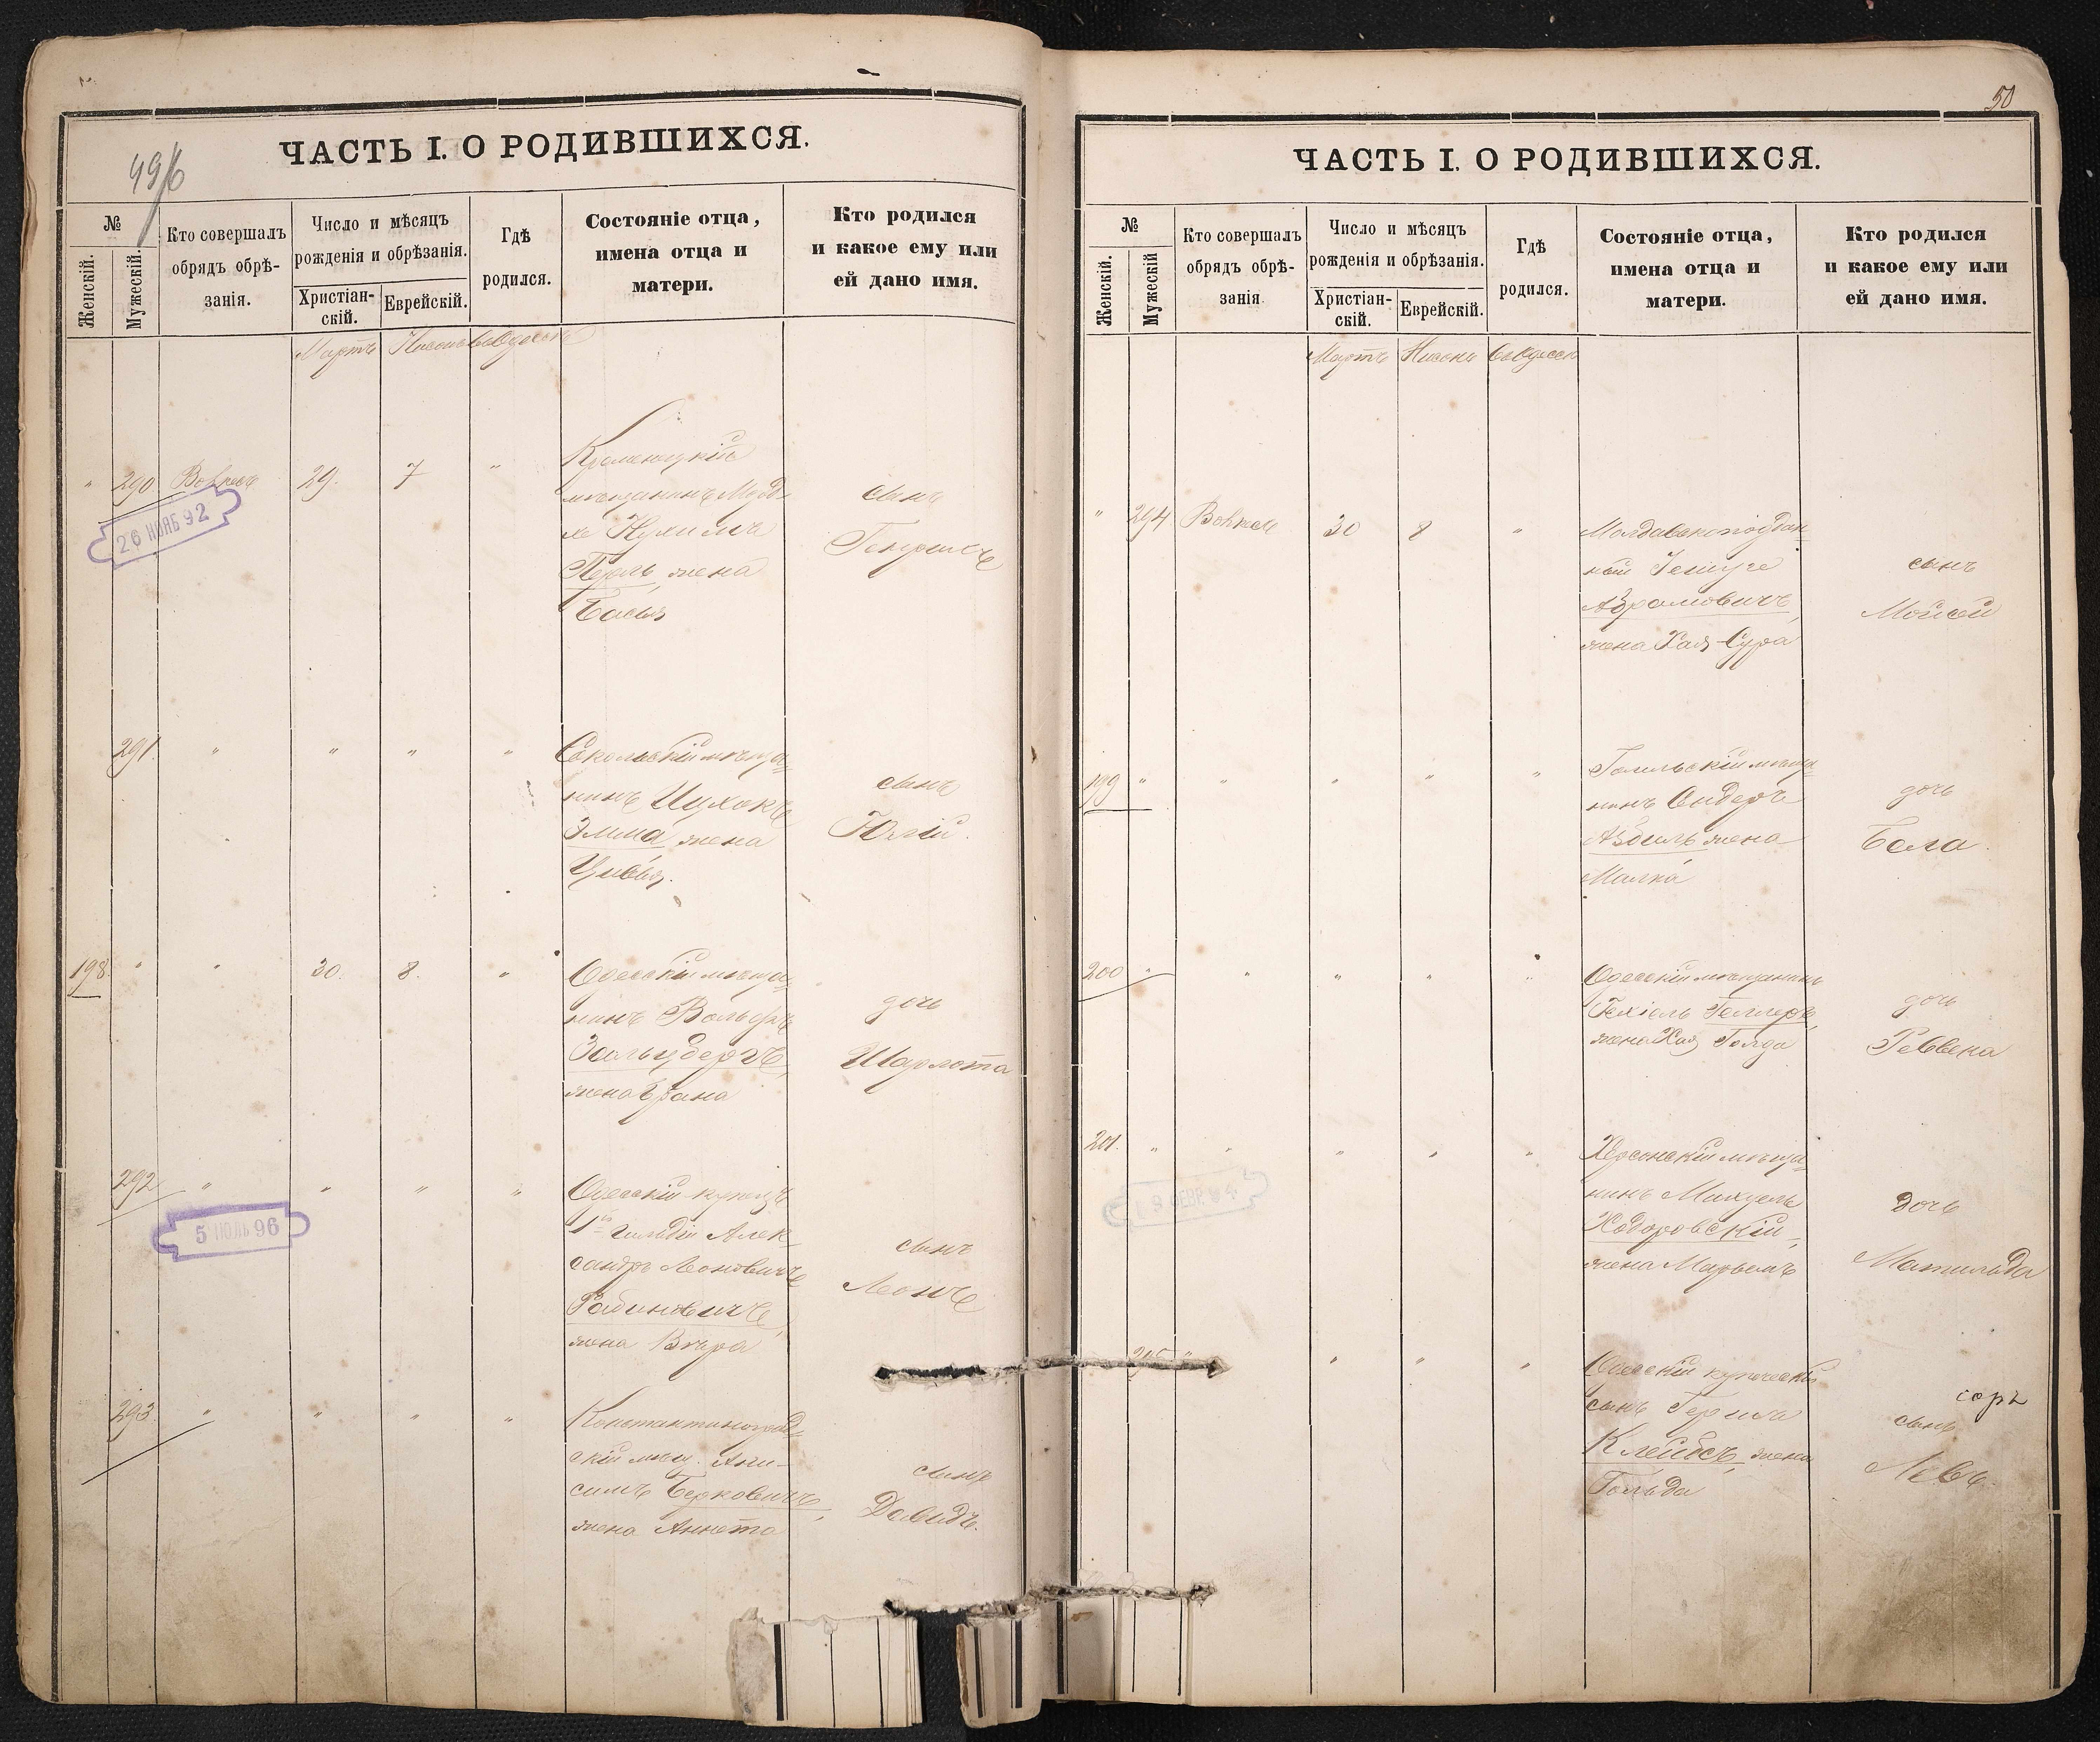 49/6
ЧАСТЬ I. О РОДИВШИХСЯ.
№
Женскій.
Мужескій.
Кто совершалъ
обрядъ обрѣ-
занія.
Число и мѣсяцъ
рожденія и обрѣзанія.
Христіан-
скій.
Еврейскій.
Гдѣ
родился.
Состояніе отца,
имена отца и
матери.
Кто родился
и какое ему или
ей дано имя.
Мартъ
"
290
29.
7
"
мѣщанинъ
Перль, жена
Басья
сынъ
26 НОЯБ 92
291.
"
"
"
"
Сокольскій мѣща-
нинъ Ицхокъ
Элма жена
Цивья.
сынъ
Юлій.
198.
"
"
30.
8.
"
Одесскій мѣща-
нинъ Вольфъ
Зальцбергъ,
жена Брана
дочь
Шарлота
292
"
"
"
"
Одесскій купецъ
1й гильдіи Алек-
сандръ Леоновичъ
Рабиновичъ,
жена Вѣра
сынъ
Леонъ
5 ИЮЛЬ 96
293.
"
"
"
"
Константиноград-
скій мѣщ. Ани-
симъ Берковичъ,
жена Аннета
сынъ
Давидъ.
50
ЧАСТЬ I. О РОДИВШИХСЯ.
№
Женскій.
Мужескій
Кто совершалъ
обрядъ обрѣ-
занія
Число и мѣсяцъ
рожденія и обрѣзанія.
Христіан-
скій.
Еврейскій.
Гдѣ
родился.
Состояніе отца,
имена отца и
матери.
Кто родился
и какое ему или
ей дано имя.
Мартъ
Нисонъ
"
294
30
8
"
Молдавскоподдан-
ный
Абрамовичъ,
жена Хая-Сура
сынъ
Мойсей
199
"
"
"
"
"
мѣща-
нинъ Сендеръ
жена
Малка
дочь
Бела.
200
"
"
"
"
"
Одесскій мѣщанинъ
Іехіель Геллеръ,
жена Хая Голда
дочь
Ревека
201.
"
"
"
"
"
Херсонскій мѣща-
нинъ Михуель
Ходоровскій,
жена Марьемъ
дочь
Матильда
295
"
"
"
"
Одесскій купеческій
сынъ Герша
Клейбсъ, жена
Гольда
сынъ
Левъ.